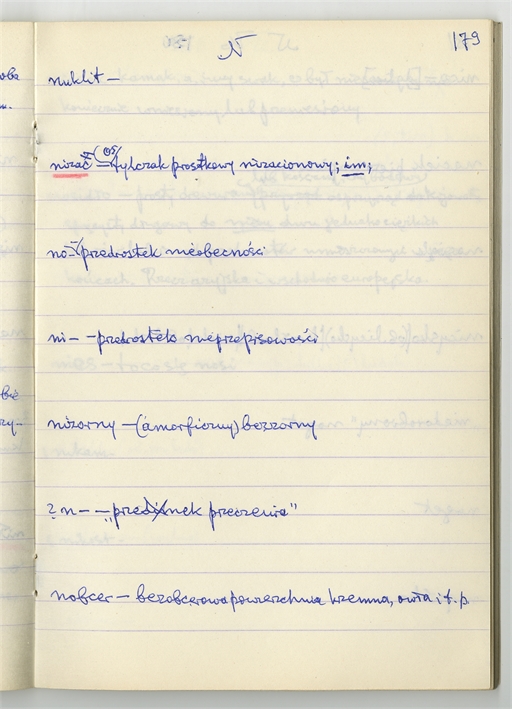 N
179
nuklit –
nizać – tylczak prostkowy nizacionowy; im;
no- – przedrostek nieobecności
ni- – przedrostek nieprzepisowości
nizorny – (amorficzny) bezzorny
? n- – „ przeczenie"
nobcer – bezobcerowa powierzchnia krzemna, owta i t. p.